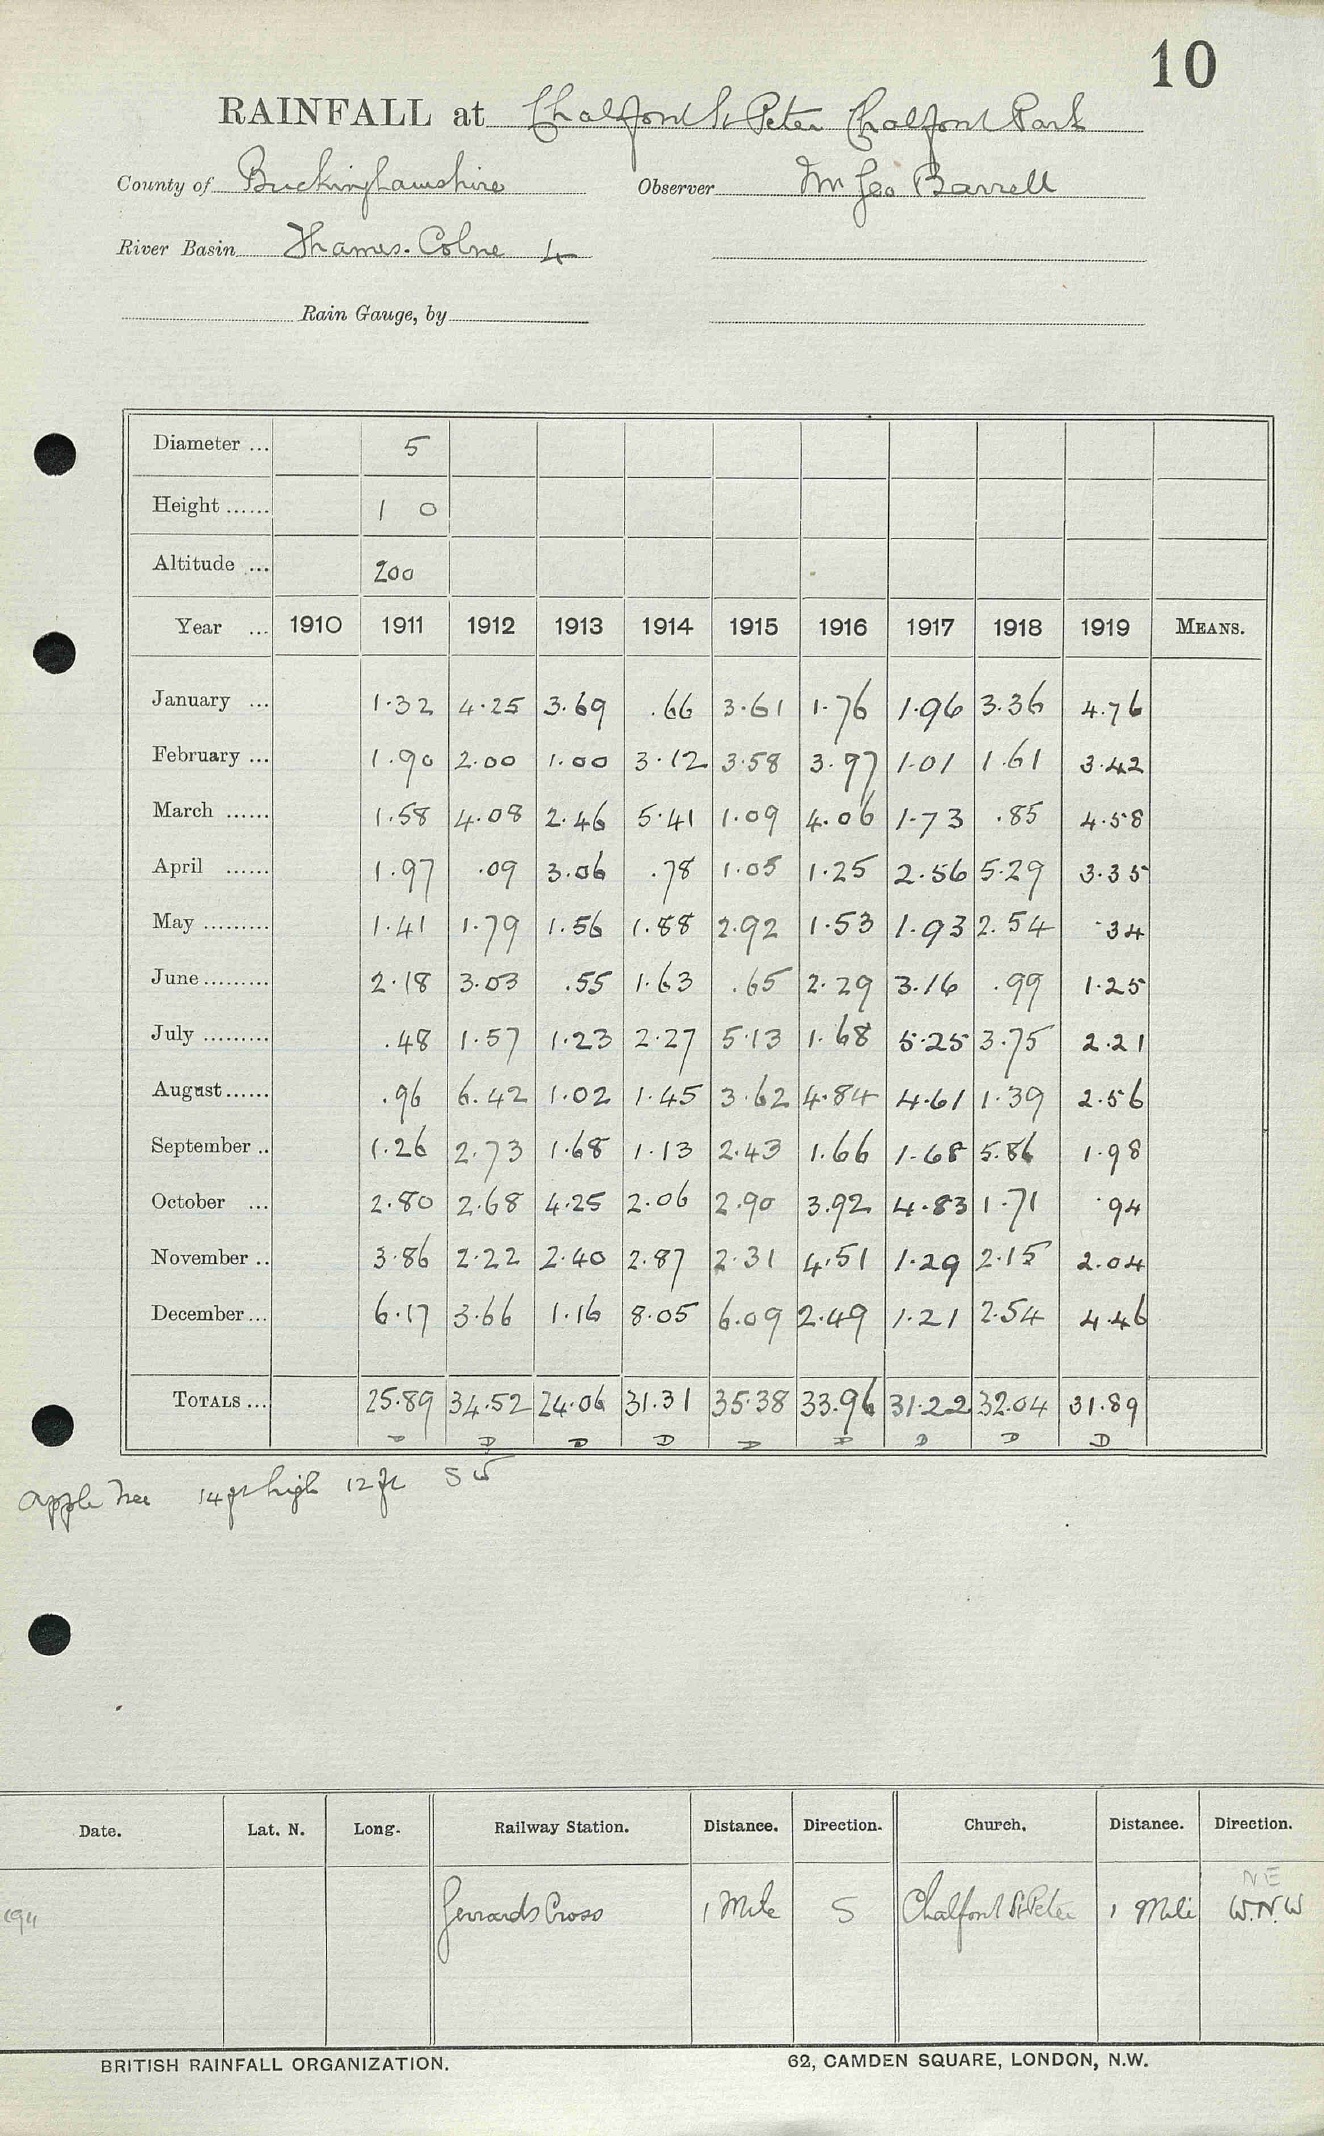 10
RAINFALL at Chalfont St Peter Chalfont Park
County of Buckinghamshire Observer Mr Geo Barrell
River Basin Thames. Colne 4
Rain Gauge, by
Diameter ... 5
Height ...... 1 0
Altitude ... 200
Year ... 1910 1911 1912 1913 1914 1915 1916 1917 1918 1919 MEANS.
January ... 1.32 4.25 3.69 .66 3.61 1.76 1.96 3.36 4.76
February ... 1.90 2.00 1.00 3.12 3.58 3.97 1.01 1.61 3.42
March ...... 1.58 4.08 2.46 5.41 1.09 4.06 1.73 .85 4.58
April ...... 1.97 .09 3.06 .78 1.05 1.25 2.56 5.29 3.35
May ......... 1.41 1.79 1.56 1.88 2.92 1.53 1.93 2.54 .34
June ......... 2.18 3.03 .55 1.63 .65 2.29 3.16 .99 1.25
July ......... .48 1.57 1.23 2.27 5.13 1.68 5.25 3.75 2.21
August ...... .96 6.42 1.02 1.45 3.62 4.84 4.61 1.39 2.56
September .. 1.26 2.73 1.68 1.13 2.43 1.66 1.68 5.86 1.98
October ... 2.80 2.68 4.25 2.06 2.90 3.92 4.83 1.71 .94
November .. 3.86 2.22 2.40 2.87 2.31 4.51 1.29 2.15 2.04
December ... 6.17 3.66 1.16 8.05 6.09 2.49 1.21 2.54 4.46
TOTALS ... 25.89 34.52 24.06 31.31 35.38 33.96 31.22 32.04 31.89
D D D D D D D D D
Apple Tree 14 ft high 12 ft SW
Date. Lat. N. Long. Railway Station. Distance. Direction. Church. Distance. Direction.
NE
1911 Gerrards Cross 1 Mile S Chalfont St Peter 1 Mile W.N.W
BRITISH RAINFALL ORGANIZATION. 62, CAMDEN SQUARE, LONDON, N.W.